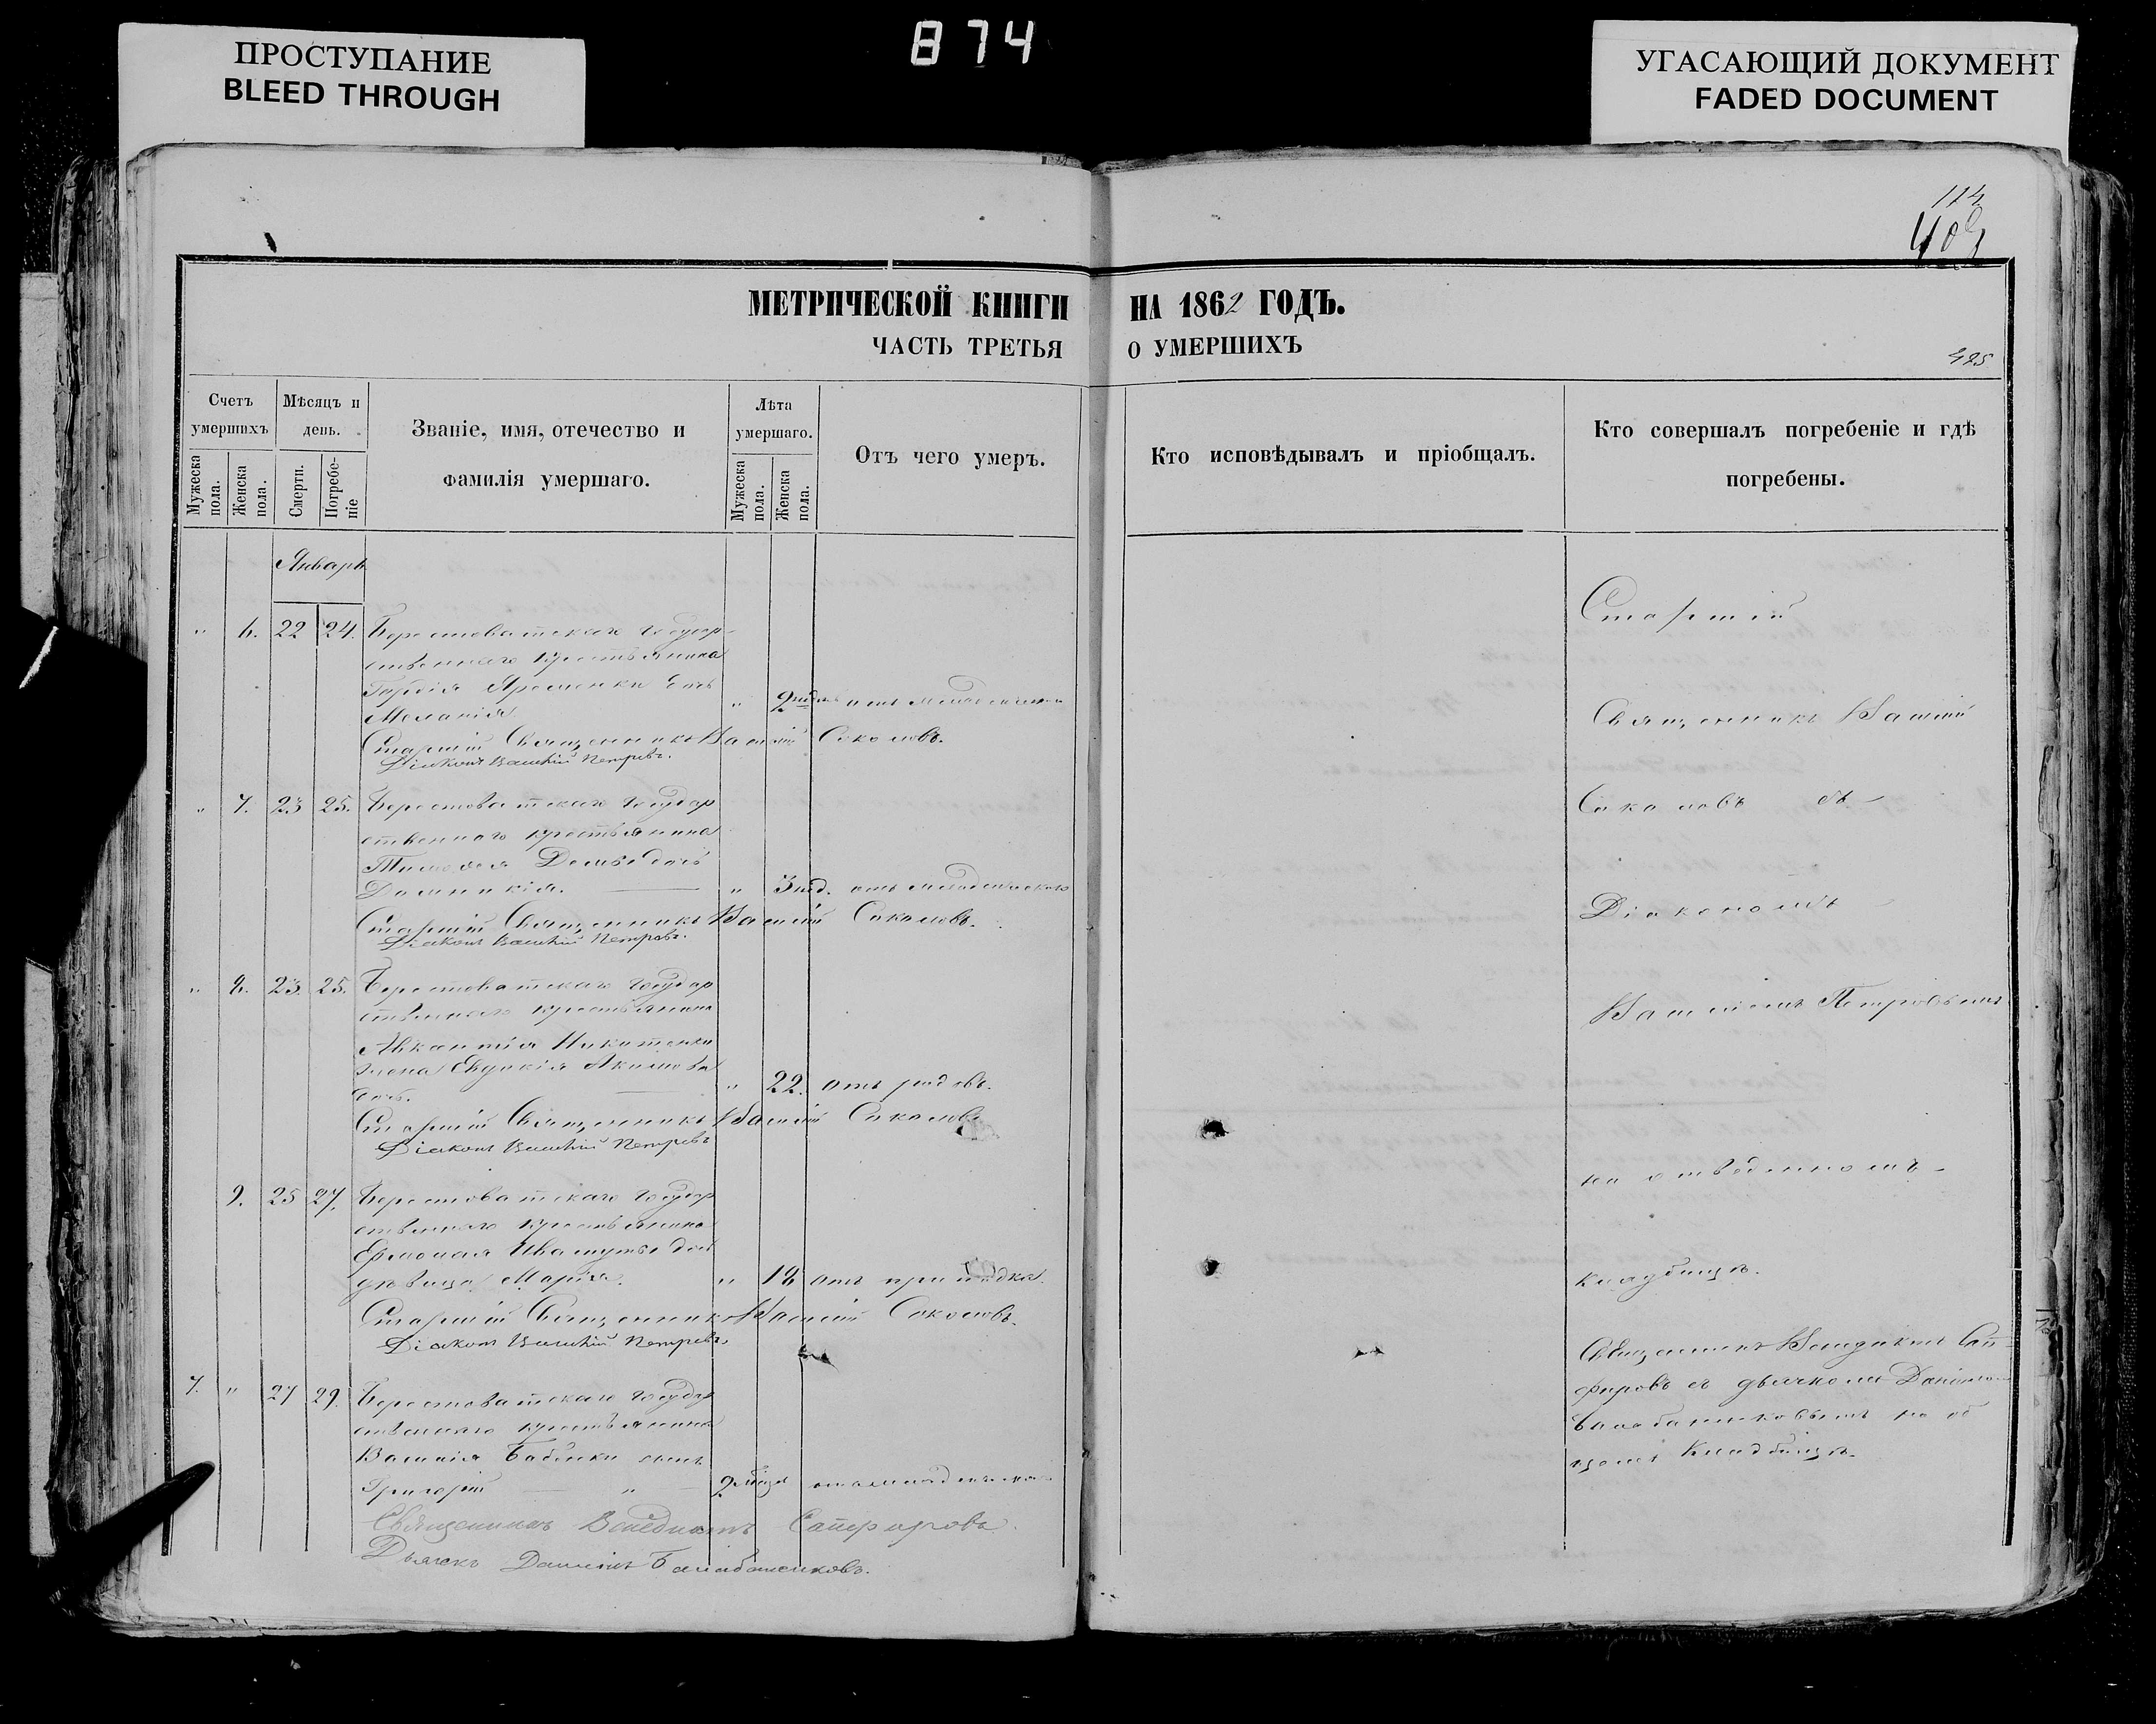 ПРОСТУПАНИЕ
BLEED THROUGH
874
УГАСАЮЩИЙ ДОКУМЕНТ
FADED DOCUMENT
114.
403
МЕТРИЧЕСКОЙ КНИГИ НА 1862 ГОДЪ.
ЧАСТЬ ТРЕТЬЯ О УМЕРШИХЪ
425
Счетъ умершихъ
Мѣсяцъ и день.
Званіе, имя, отечество и фамилія умершаго.
Лѣта умершаго.
Отъ чего умеръ.
Кто исповѣдывалъ и пріобщалъ.
Кто совершалъ погребеніе и гдѣ погребены.
Мужеска пола.
Женска пола.
Смерти.
Погребеніе
Мужеска пола.
Женска пола.
Январь
" 6. 22 24. Берестоватскаго государ-
ственнаго крестьянина
Гордія Яременки дочь
Меланія " 2 нед. отъ младенческой
Старшій Священникъ Василій Соколовъ.
Діаконъ Василій Петровъ.
" 7. 23 25. Берестоватскаго государ
ственнаго крестьянина
Тимофея дочь
Домникія. " 3 нед. отъ младенческой
Старшій Священникъ Василій Соколовъ.
Діаконъ Василій Петровъ.
" 8. 23. 25. Берестоватскаго государ
ственнаго крестьянина
Никитенки
жена Евдокія Акимова
дочь. " 22. отъ родовъ.
Старшій Священникъ Василій Соколовъ
Діаконъ Василій Петровъ
9. 25 27. Берестоватскаго государ
ственнаго крестьянина
Ермолая дочь
дѣвица Марія. " 18 отъ припадка.
Старшій Священникъ Василій Соколовъ.
Діаконъ Василій Петровъ
7. " 27 29. Берестоватскаго государ
ственнаго крестьянина
Василія Бабенки сынъ
Григорій " 2 мѣсяц отъ младенческой
Священникъ Венедиктъ Сапфировъ.
Дьячекъ Даніилъ Балабаненковъ.
Старшій
Священникъ Василій
Соколовъ съ
Діакономъ
Василіемъ Петровымъ
на отведенномъ
кладбищѣ.
Священникъ Венедиктъ Сап-
фировъ съ дьячкомъ Даніиломъ
Балабаненковымъ на об
щемъ кладбищѣ.